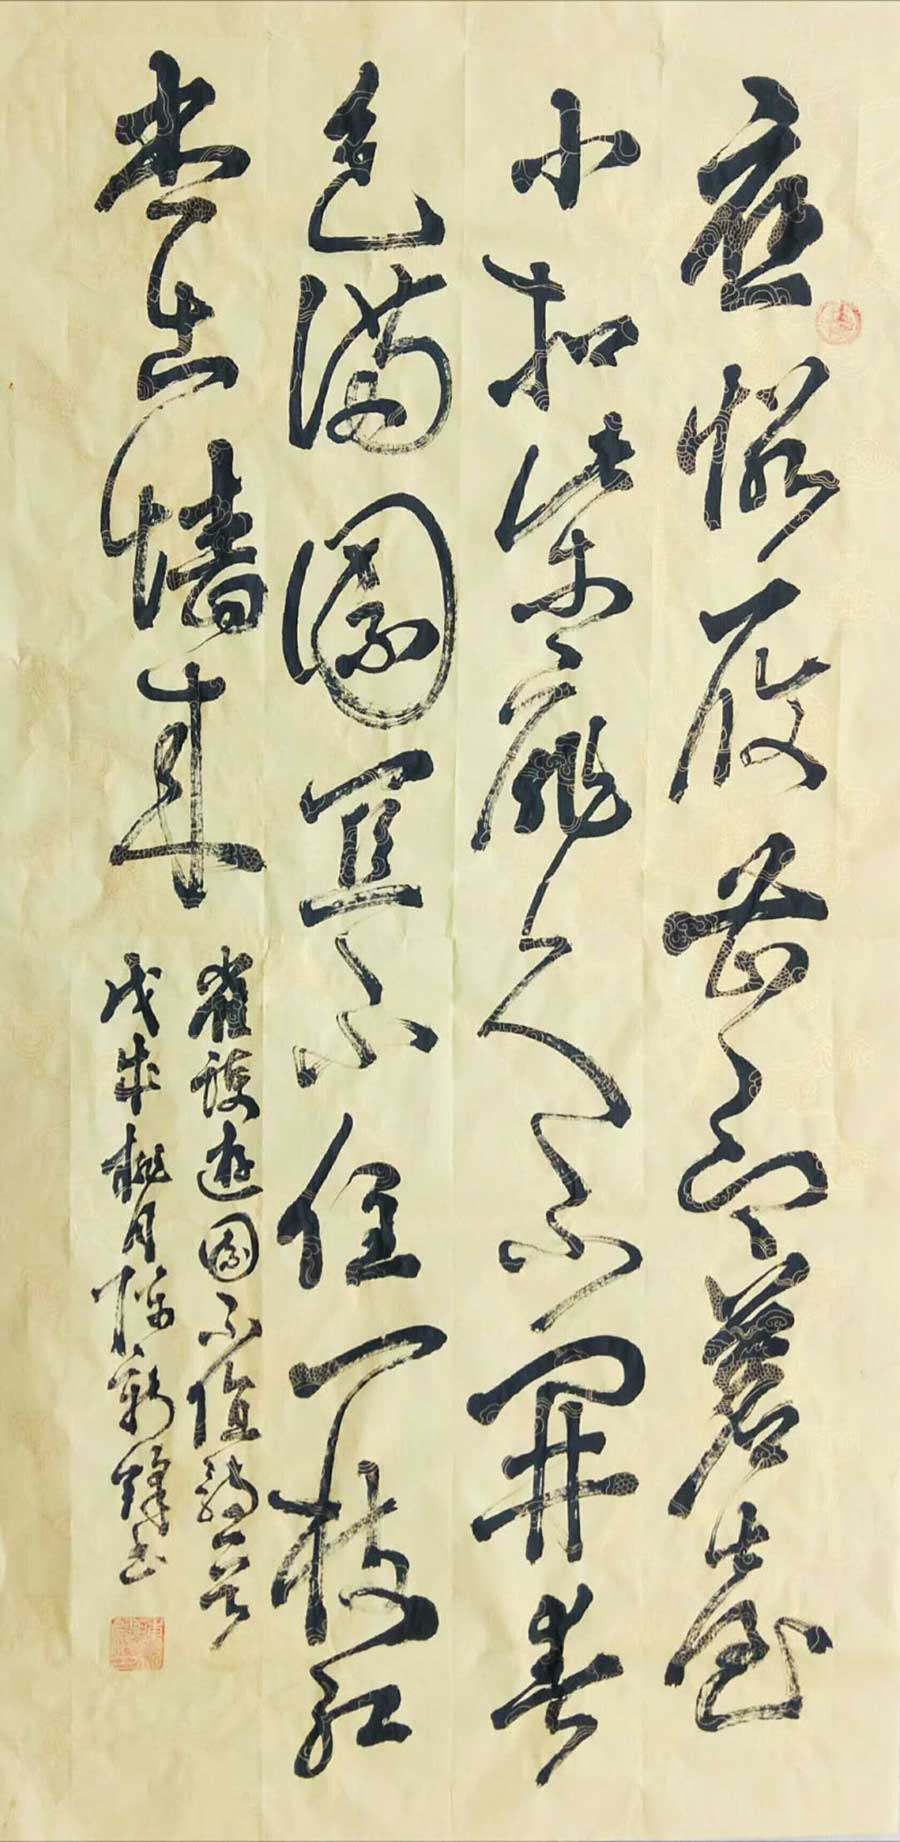 應憐屐齒印蒼苔
小扣柴扉久不開春
色滿園関不住一枝紅
杏出墻來
遊園不值詩一首
戊戌桃月陳新鋒书